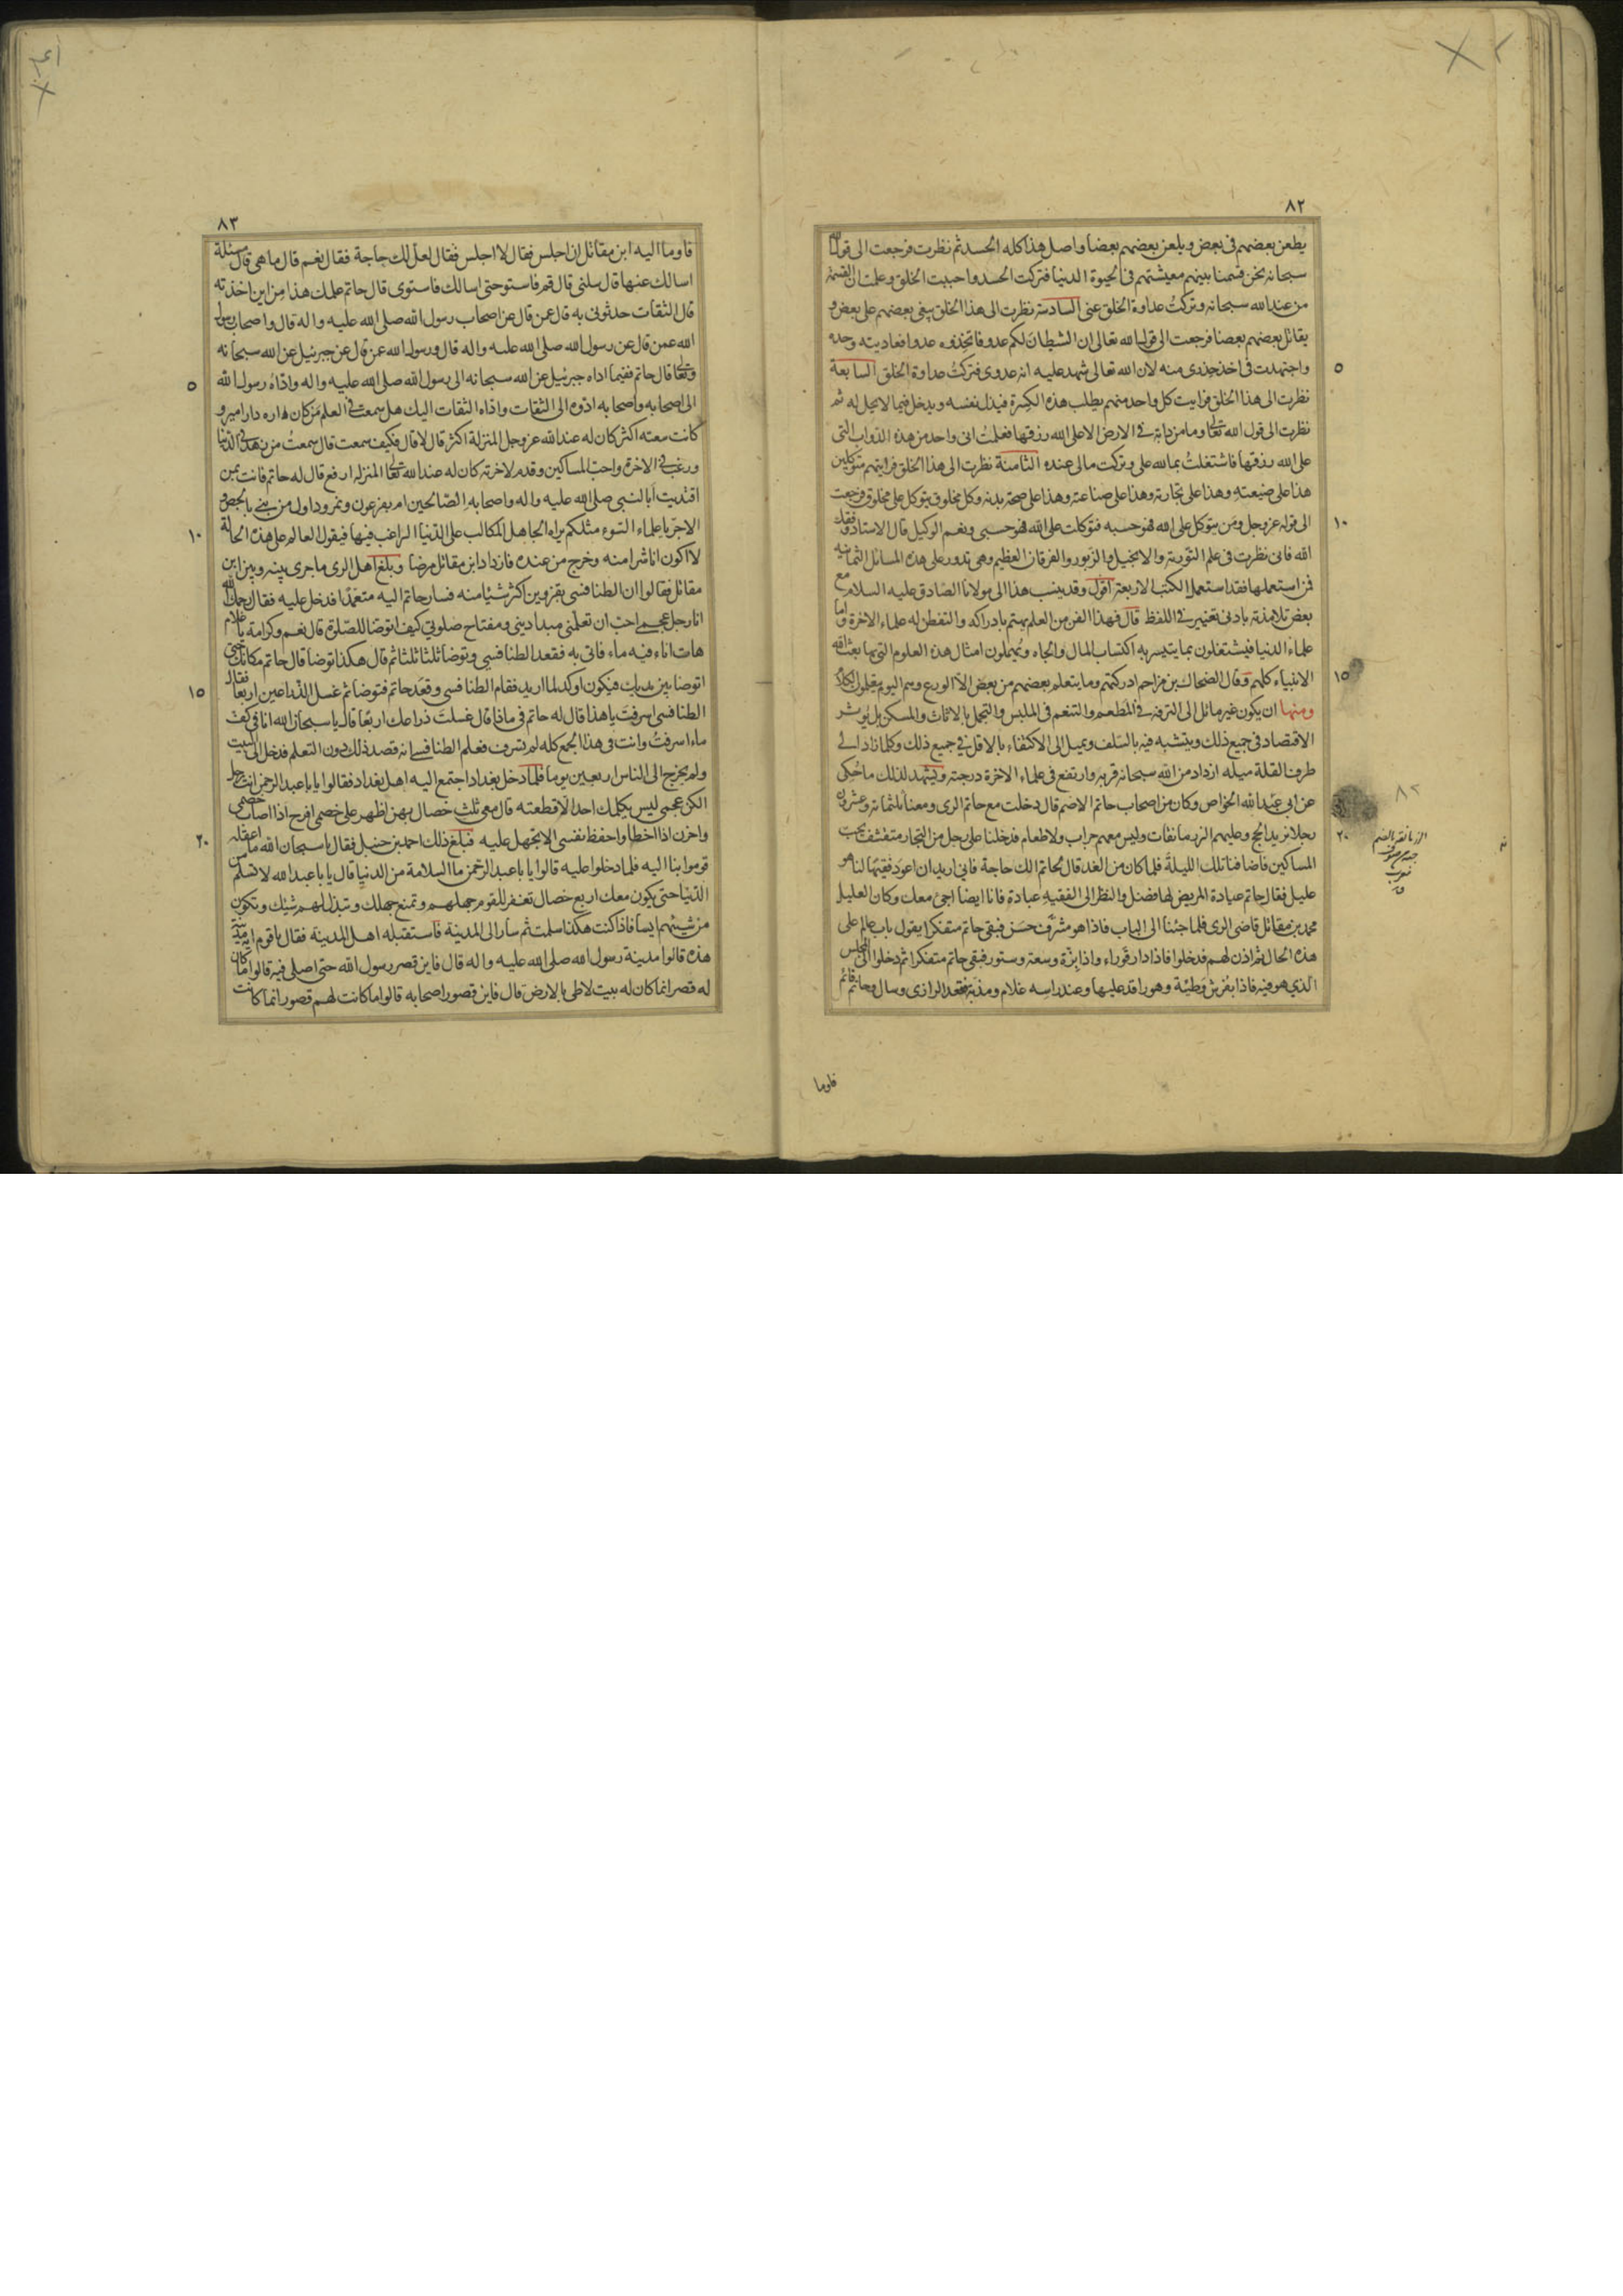 ٨٢
يطعن بعضهم فى بعض ويلعن بعضهم بعضا واصل هذا كله الحسد ثم نظرت فرجعت الى قول الله
سبحانه نحن قسمنا بينهم معيشتهم فى الحيوة الدنيا فتركت الحسد واحببت الخلق وعلمت ان القسمة
من عند الله سبحانه وتركتُ عداوة الخلق عنى السادسة نظرت الى هذا الخلق يبغى بعضهم على بعض و
يقاتل بعضهم بعضا فرجعت الى قول الله تعالى ان الشيطان لكم عدو فاتخذوه عدوا فعاديته وحده
٥
واجتهدت فى اخذ حذرى منه لان الله تعالى شهد عليه انه عدوى فتركتُ عداوة الخلق السابعة
نظرت الى هذا الخلق فرايت كل واحد منهم يطلب هذه الكسرة فيذل نفسه ويدخل فيما لا يحل له ثم
نظرت الى قول الله تعالى وما من دابة فى الارض الا على الله رزقها فعلمتُ انى واحد من هذه الدواب التى
على الله رزقها فاشتغلتُ بما لله على وتركت مالى عنده الثامنة نظرت الى هذا الخلق فرايتهم متوكلين
هذا على ضيعته وهذا على تجارته وهذا على صناعته وهذا على صحة بدنه وكل مخلوق يتوكل على مخلوق فرجعت
١٠
الى قوله عز وجل ومن يتوكل على الله فهو حسبه فتوكلت على الله فهو حسبى ونعم الوكيل قال الاستاد وفقك
الله فانى نظرت فى علم التورية والانجيل والزبور والفرقان العظيم وهى تدور على هذه المسائل الثمانية
فمن استعملها فقد استعمل الكتب الاربعة اقول وقد ينسب هذا الى مولانا الصادق عليه السلام مع
بعض تلامذته بادنى تغيير فى اللفظ قال فهذا الفن من العلم يهتم بادراكه والتفطن له علماء الاخرة واما
علماء الدنيا فيشتغلون بما يتيسر به اكتساب المال والجاه ويهملون امثال هذه العلوم التى بها بعث الله
١٥
الانبياء كلهم وقال الضحاك بن مزاحم ادركتهم وما يتعلم بعضهم من بعض الا الورع وهم اليوم يتعلمون الكلام
ومنها ان يكون غير مائل الى الترفه فى المطعم والتنعم فى الملبس والتجمل بالاثاث والمسكن بل يؤثر
الاقتصاد فى جميع ذلك ويتشبه فيه بالسلف ويميل الى الاكتفاء بالاقل فى جميع ذلك وكلما زاد الى
طرف القلة ميله ازداد من الله سبحانه قربه وارتفع فى علماء الاخرة درجته ويشهد لذلك ما حُكى
عن ابى عبد الله الخواص وكان من اصحاب حاتم الاصم قال دخلت مع حاتم الرى ومعنا ثلثمائة وعشرون
٢٠
رجلا نريد الحج وعليهم الزرمانقات وليس معهم جراب ولا طعام فدخلنا على رجل من التجار متقشف يحب
المساكين فاضافنا تلك الليلة فلما كان من الغد قال لحاتم الك حاجة فانى اريد ان اعود فقيها لنا هو
عليل فقال حاتم عيادة المريض لها فضل والنظر الى الفقيه عبادة فانا ايضا اجئ معك وكان العليل
محمد بن مقاتل قاضى الرى فلما جئنا الى الباب فاذا هو مشرّف حسن فبقى حاتم متفكرا يقول باب عالم على
هذه الحال ثم اذن لهم فدخلوا فاذا دار قوراء واذا بزّة وسعة وستور فبقى حاتم متفكرا ثم دخلوا الى المجلس
الذى هو فيه فاذا بفرش وطيئة وهو راقد عليها وعند راسه غلام ومذبّة فقعد الرازى وسال وحاتم قائم
فاوما
٨٣
فاوما اليه ابن مقاتل ان اجلس فقال لا اجلس فقال لعل لك حاجة فقال نعم قال ما هى قال مسئلة
اسالك عنها قال سلنى قال قم فاستو حتى اسالك فاستوى قال حاتم علمك هذا من اين اخذته
قال الثقات حدثونى به قال عمن قال عن اصحاب رسول الله صلى الله عليه واله قال واصحاب رسول
الله عمن قال عن رسول الله صلى الله عليه واله قال ورسول الله عمن قال عن جبرئيل عن الله سبحانه
٥
وتعالى قال حاتم ففيما اداه جبرئيل عن الله سبحانه الى رسول الله صلى الله عليه واله واداه رسول الله
الى اصحابه واصحابه ادّوه الى الثقات واداه الثقات اليك هل سمعت فى العلم من كان داره دار امير و
كانت سعته اكثر كان له عند الله عز وجل المنزلة اكثر قال لا قال فكيف سمعت قال سمعتُ من زهد فى الدنيا
ورغب فى الاخرة واحب المساكين وقدم لاخرته كان له عند الله تعالى المنزلة ارفع قال له حاتم فانت بمن
اقتديت ابالنبى صلى الله عليه واله واصحابه الصالحين ام بفرعون ونمرود اول من بنى بالجص و
١٠
الاجر يا علماء السوء مثلكم يراه الجاهل المكالب على الدنيا الراغب فيها فيقول العالم على هذه الحالة
لا اكون انا شرا منه وخرج من عنده فازداد ابن مقاتل مرضا وبلغ اهل الرى ما جرى بينه وبين ابن
مقاتل فقالوا ان الطنافسى بقزوين اكثر شيئا منه فسار حاتم اليه متعمدا فدخل عليه فقال رحمك الله
انا رجل عجمى احب ان تعلمنى مبدا دينى ومفتاح صلوتى كيف اتوضا للصلوة قال نعم وكرامة يا غلام
هات اناء فيه ماء فاتى به فقعد الطنافسى وتوضا ثلثا ثلثا ثم قال هكذا توضا قال حاتم مكانك حتى
١٥
اتوضا بين يديك فيكون اوكد لما اريد فقام الطنافسى وقعد حاتم فتوضا ثم غسل الذراعين اربعا فقال
الطنافسى اسرفت يا هذا قال له حاتم فى ماذا قال غسلت ذراعك اربعًا قال يا سبحان الله انا فى كف
ماء اسرفتُ وانت فى هذا الجمع كله لم تسرف فعلم الطنافسى انه قصد ذلك دون التعلم فدخل الى البيت
ولم يخرج الى الناس اربعين يوما فلما دخل بغداد اجتمع اليه اهل بغداد فقالوا يا با عبد الرحمن انت رجل
الكن عجمى ليس يكلمك احد الا قطعته قال معى ثلث خصال بهن اظهر على خصمى افرح اذا اصاب خصمى
٢٠
واحزن اذا اخطا واحفظ نفسى الا تجهل عليه فبلغ ذلك احمد بن حنبل فقال يا سبحان الله ما اعقله
قوموا بنا اليه فلما دخلوا عليه قالوا يا با عبد الرحمن ما السلامة من الدنيا قال يا با عبد الله لا تسلم من
الدنيا حتى يكون معك اربع خصال تغفر للقوم جهلهم وتمنع جهلك وتبذل لهم شيئك وتكون
من شيئهم ايسا فاذا كنت هكذا سلمت ثم سار الى المدينة فاستقبله اهل المدينة فقال يا قوم اية مدينة
هذه قالوا مدينة رسول الله صلى الله عليه واله قال فاين قصر رسول الله حتى اصلى فيه قالوا ما كان
له قصر انما كان له بيت لاطى بالارض قال فاين قصور اصحابه قالوا ما كانت لهم قصور انما كانت